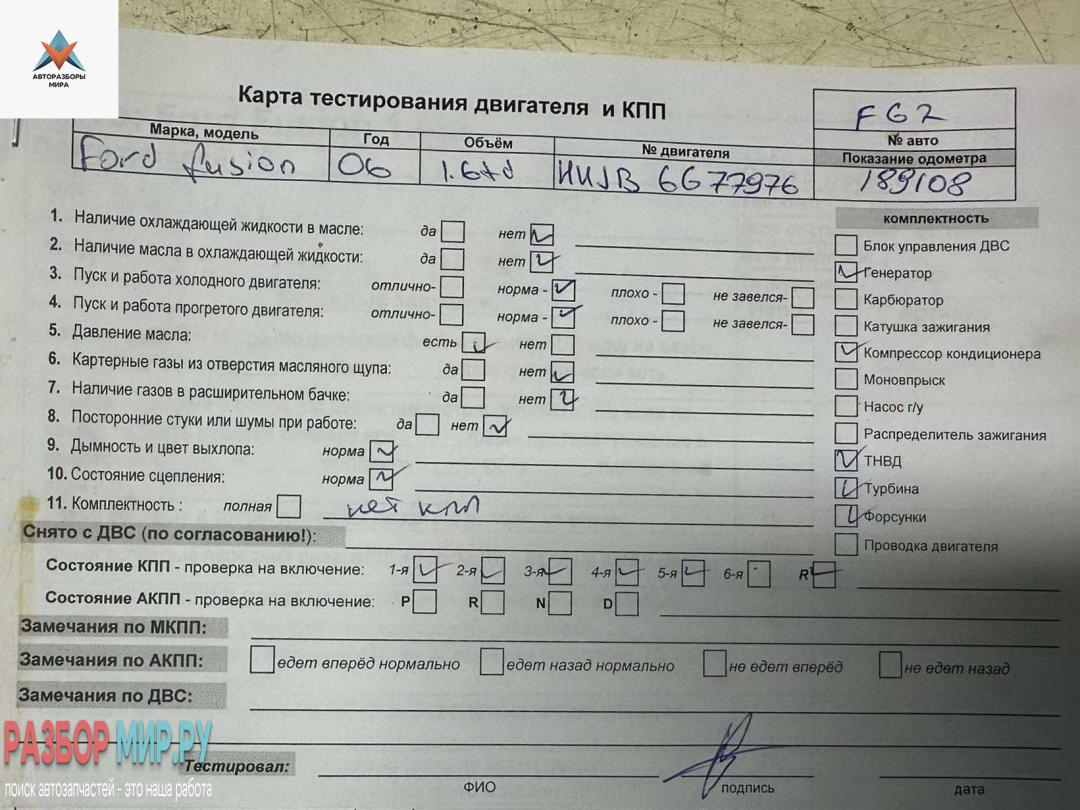 АВТОРАЗБОРЫ
МИРА
Карта тестирования двигателя и КПП
F62
№ авто
Марка, модель Год Объём № двигателя Показание одометра
Ford fusion 06 1.6td HHJB 6G77976 189108
комплектность
1. Наличие охлаждающей жидкости в масле: да нет
2. Наличие масла в охлаждающей жидкости: да нет
3. Пуск и работа холодного двигателя: отлично- норма - плохо - не завелся-
4. Пуск и работа прогретого двигателя: отлично- норма - плохо - не завелся-
5. Давление масла: есть нет
6. Картерные газы из отверстия масляного щупа: да нет
7. Наличие газов в расширительном бачке: да нет
8. Посторонние стуки или шумы при работе: да нет
9. Дымность и цвет выхлопа: норма
10. Состояние сцепления: норма
11. Комплектность : полная нет кпп
Блок управления ДВС
Генератор
Карбюратор
Катушка зажигания
Компрессор кондиционера
Моновпрыск
Насос г/у
Распределитель зажигания
ТНВД
Турбина
Форсунки
Проводка двигателя
Снято с ДВС (по согласованию!):
Состояние КПП - проверка на включение: 1-я 2-я 3-я 4-я 5-я 6-я R
Состояние АКПП - проверка на включение: P R N D
Замечания по МКПП:
Замечания по АКПП: едет вперёд нормально едет назад нормально не едет вперёд не едет назад
Замечания по ДВС:
РАЗБОР МИР.РУ
поиск автозапчастей - это наша работа
Тестировал:
ФИО подпись дата